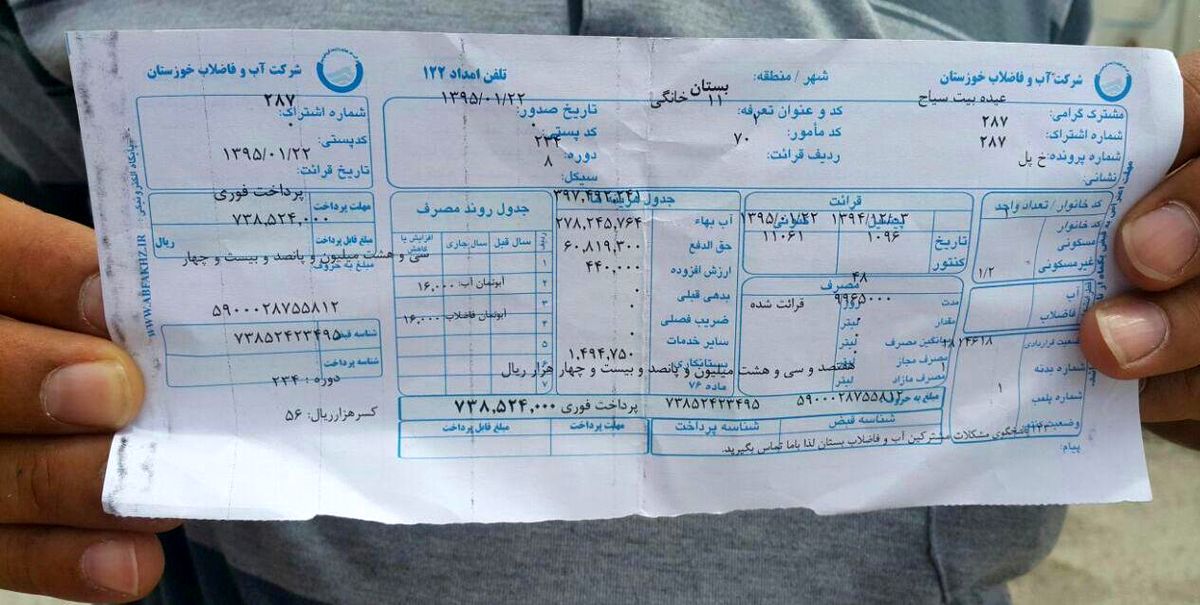 شرکت آب و فاضلاب خوزستان
شهر / منطقه: بستان
تلفن امداد ۱۲۲
مشترک گرامی: عبده بیت سیاح
شماره اشتراک: ۲۸۷
شماره پرونده: ۲۸۷
نشانی: خ پل
کد و عنوان تعرفه: ۱۱ خانگی
کد مأمور: ۲
ردیف قرائت: ۷۰
تاریخ صدور: ۱۳۹۵/۰۱/۲۲
کد پستی: ۰
دوره: ۲۳۴
سیکل: ۸
کد خانوار / تعداد واحد
کد خانوار
مسکونی
غیرمسکونی
۱/۲
آب
فاضلاب
شماره بدنه
شماره پلمب ۱
پیام:
قرائت
پیشین
کنونی
تاریخ ۱۳۹۴/۱۲/۰۳ ۱۳۹۵/۰۱/۲۲
کنتور ۱۰۹۶ ۱۱۰۶۱
مصرف
مدت ۴۸
مقدار لیتر ۹۹۶۵۰۰۰ قرائت شده
میانگین مصرف لیتر ۰
مصرف مجاز لیتر
مصرف مازاد لیتر
جدول هزینه ها
آب بهاء ۳۹۷,۴۹۲,۲۴۱
حق الدفع ۲۷۸,۲۴۵,۷۶۴
ارزش افزوده ۶۰,۸۱۹,۳۰۰
بدهی قبلی ۴۴۰,۰۰۰
ضریب فصلی ۰
سایر خدمات ۰
بستانکاری ۱,۴۹۴,۷۵۰
ماده ۷۶
جدول روند مصرف
ردیف
سال قبل
سال جاری
افزایش یا کاهش
۱
۲
۳
۴
۵
۶
۷
آبونمان آب: ۱۶,۰۰۰
آبونمان فاضلاب ۱۶,۰۰۰
مبلغ به حروف
هفتصد و سی و هشت میلیون و پانصد و بیست و چهار هزار ریال
۵۹۰۰۰۲۸۷۵۵۸۱۲
۷۳۸۵۲۴۲۳۴۹۵
پرداخت فوری
۷۳۸,۵۲۴,۰۰۰
شناسه قبض
شناسه پرداخت
مهلت پرداخت
مبلغ قابل پرداخت
پاسخگوی مشکلات مشترکین آب و فاضلاب بستان لذا باما تماس بگیرید.
شرکت آب و فاضلاب خوزستان
شماره اشتراک: ۲۸۷
کدپستی: ۰
تاریخ قرائت: ۱۳۹۵/۰۱/۲۲
مهلت پرداخت پرداخت فوری
مبلغ قابل پرداخت ۷۳۸,۵۲۴,۰۰۰ ریال
مبلغ به حروف
سی و هشت میلیون و پانصد و بیست و چهار
۵۹۰۰۰۲۸۷۵۵۸۱۲
شناسه قبض
۷۳۸۵۲۴۲۳۴۹۵
شناسه پرداخت
دوره : ۲۳۴
کسرهزارریال: ۵۶
WWW.ABFAKHZ.IR